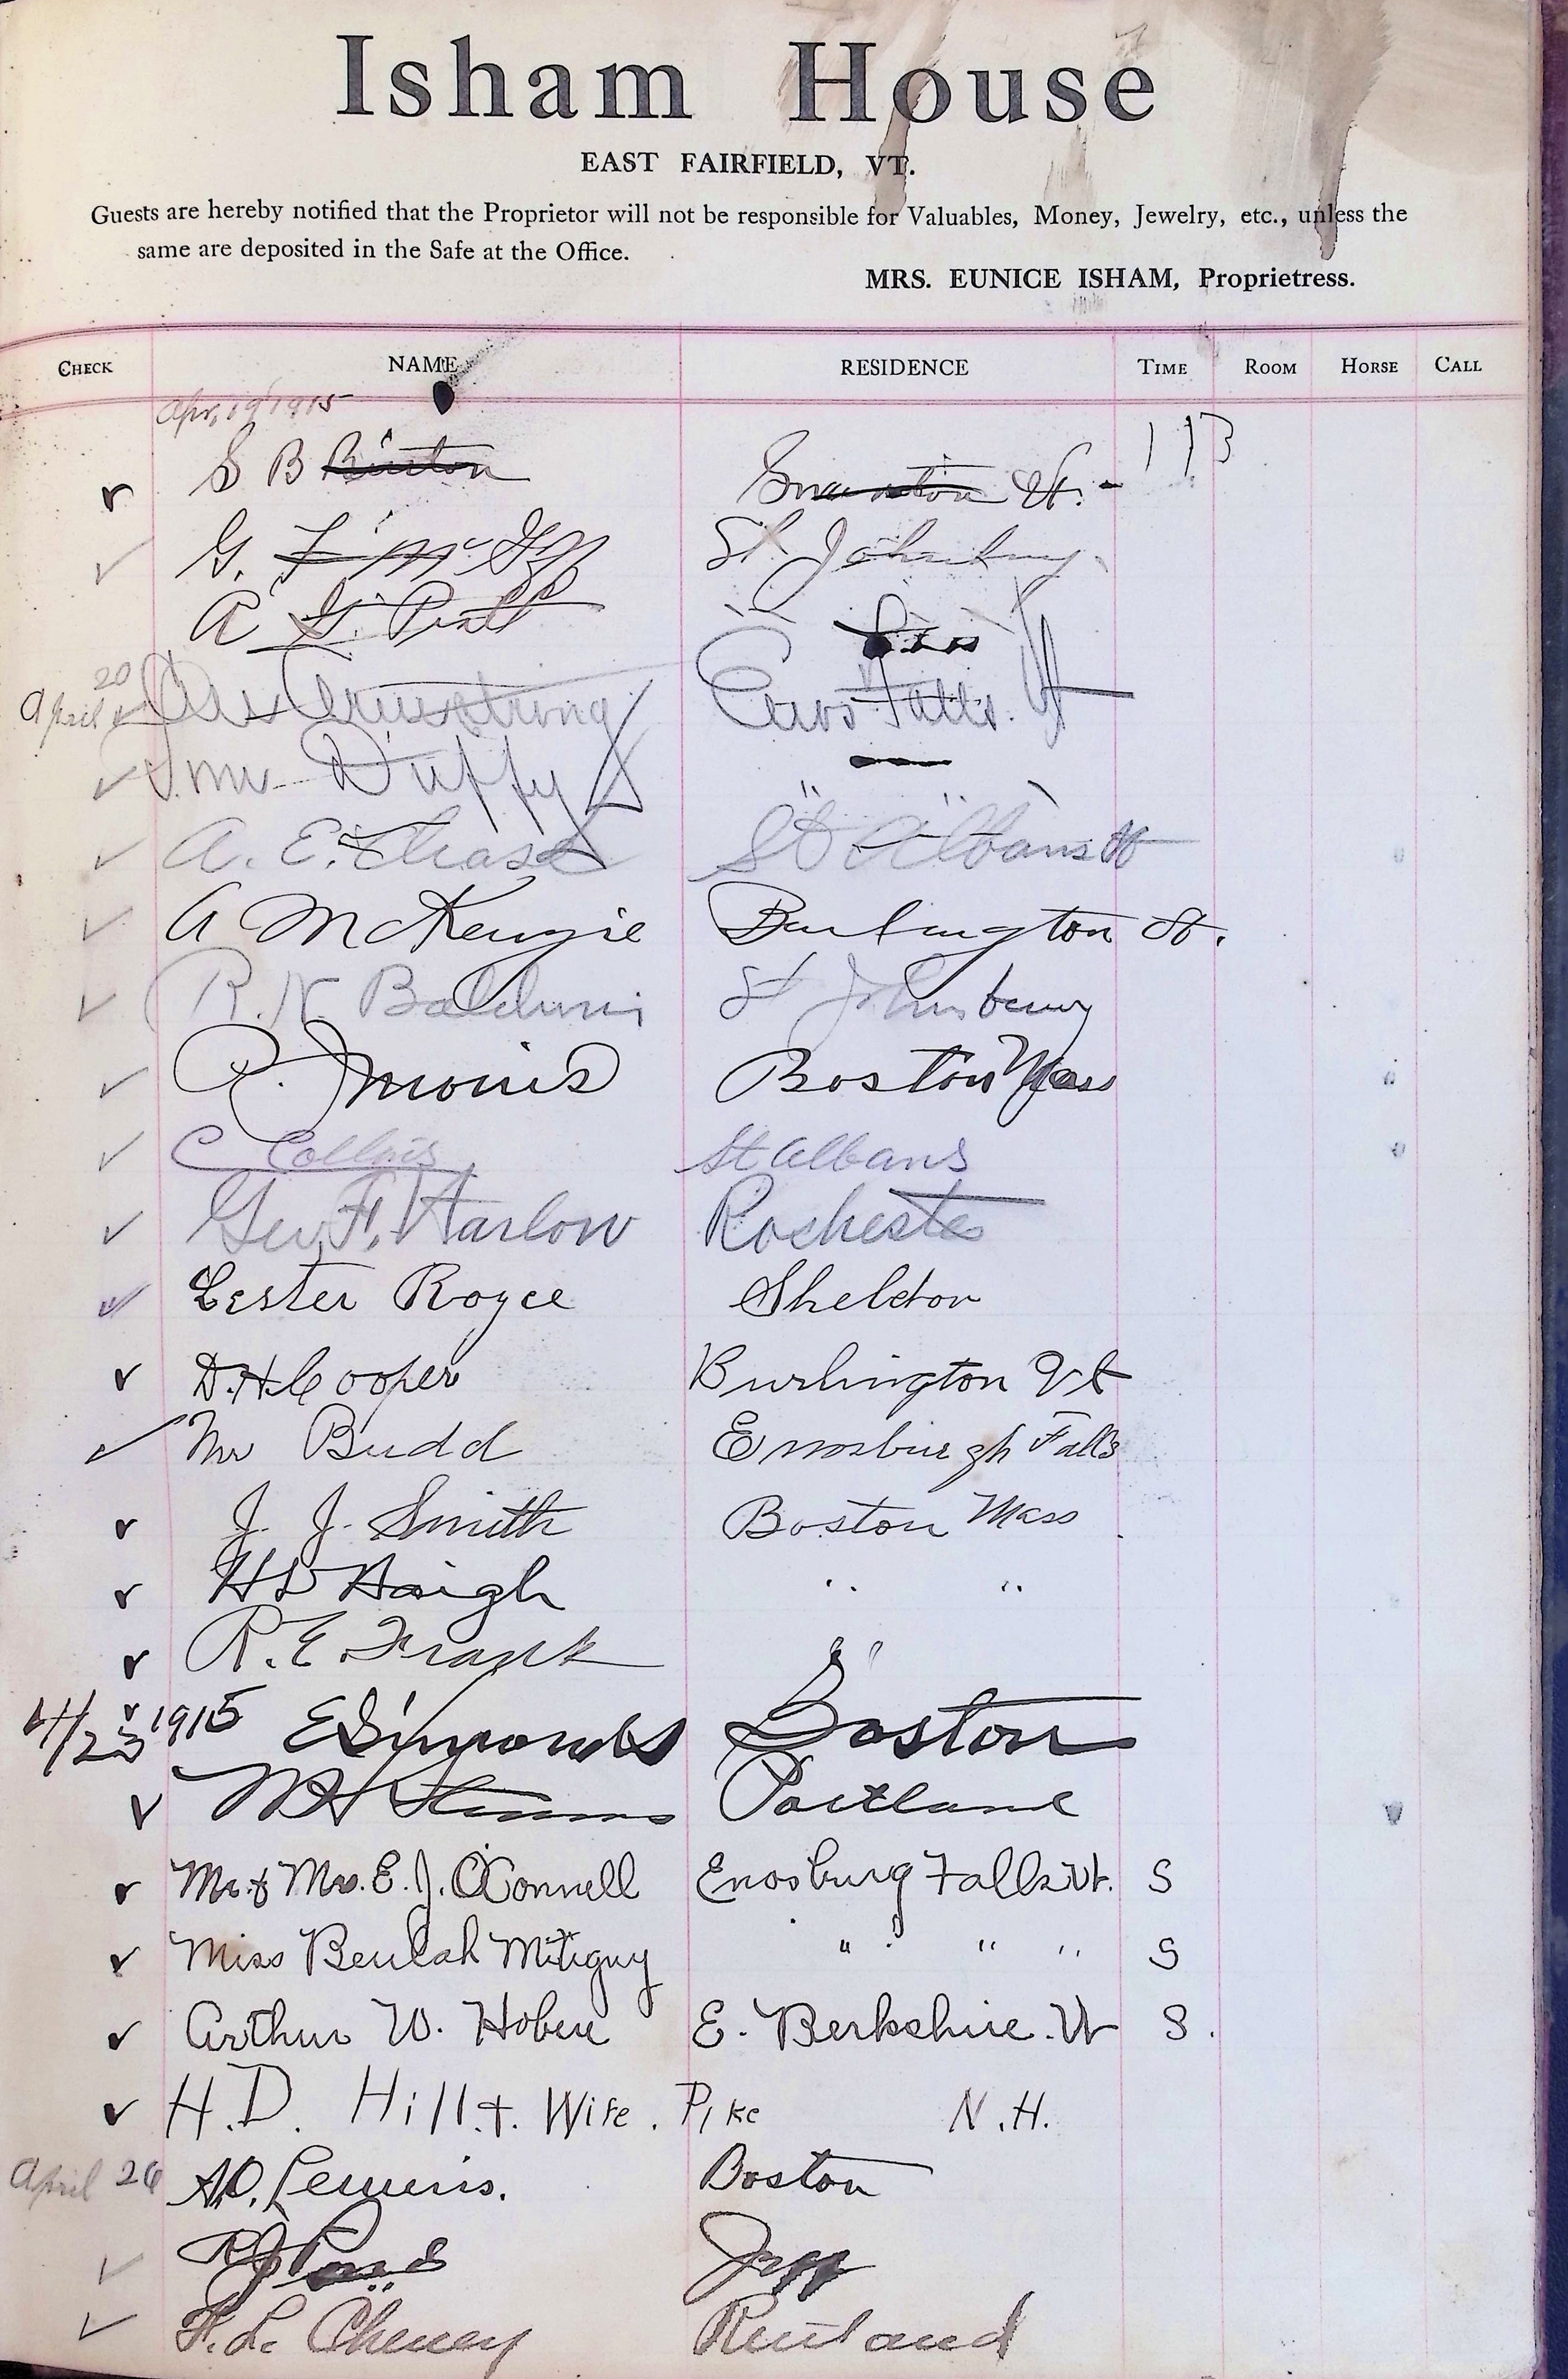 Isham House
EAST FAIRFIELD, VT.
Guests are hereby notified that the Proprietor will not be responsible for Valuables, Money, Jewelry, etc., unless the
same are deposited in the Safe at the Office.
MRS. EUNICE ISHAM, Proprietress.
CHECK NAME RESIDENCE TIME ROOM HORSE CALL
Apr, 19 1915
S B Vt.
G. St. Johnsbury
A G. Pratt
April 20 Armstrong Falls. Vt
Duffy " " "
A. E. Chase St Albans Vt
A McKenzie Burlington Vt.
R. N. Baldwin St Johnsbury
P. J Morris Boston Mass
C Collins St Albans
Geo. F. Harlow Rochester
Lester Royce Sheldon
D. H. Cooper Burlington Vt
Mr Budd Enosburgh Falls
J. J. Smith Boston Mass
H D Haigh " "
R. E. Frank "
4/23 1915 E Simonds Boston
Portland
Mr. & Mrs. E. J. O'Connell Enosburg Falls Vt. S
Miss Beulah Mitiguy " " " S
Arthur W. E. Berkshire. Vt S.
H. D. Hill + Wife. Pike N. H.
April 26 Boston
R J
F. L. Cheney Rutland